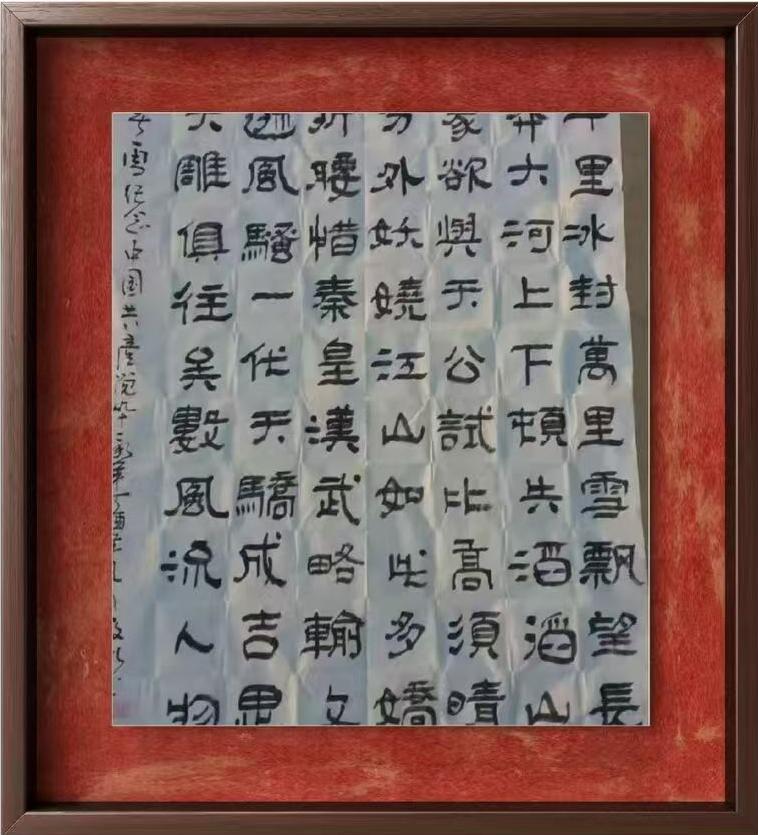 千里冰封萬里雪飄望長
莽大河上下頓失滔滔山
象欲與天公試比高須晴
分外妖嬈江山如此多嬌
折腰惜秦皇漢武略輸文
遜風騷一代天驕成吉思
大雕俱往矣數風流人物
雪纪念中国共產党